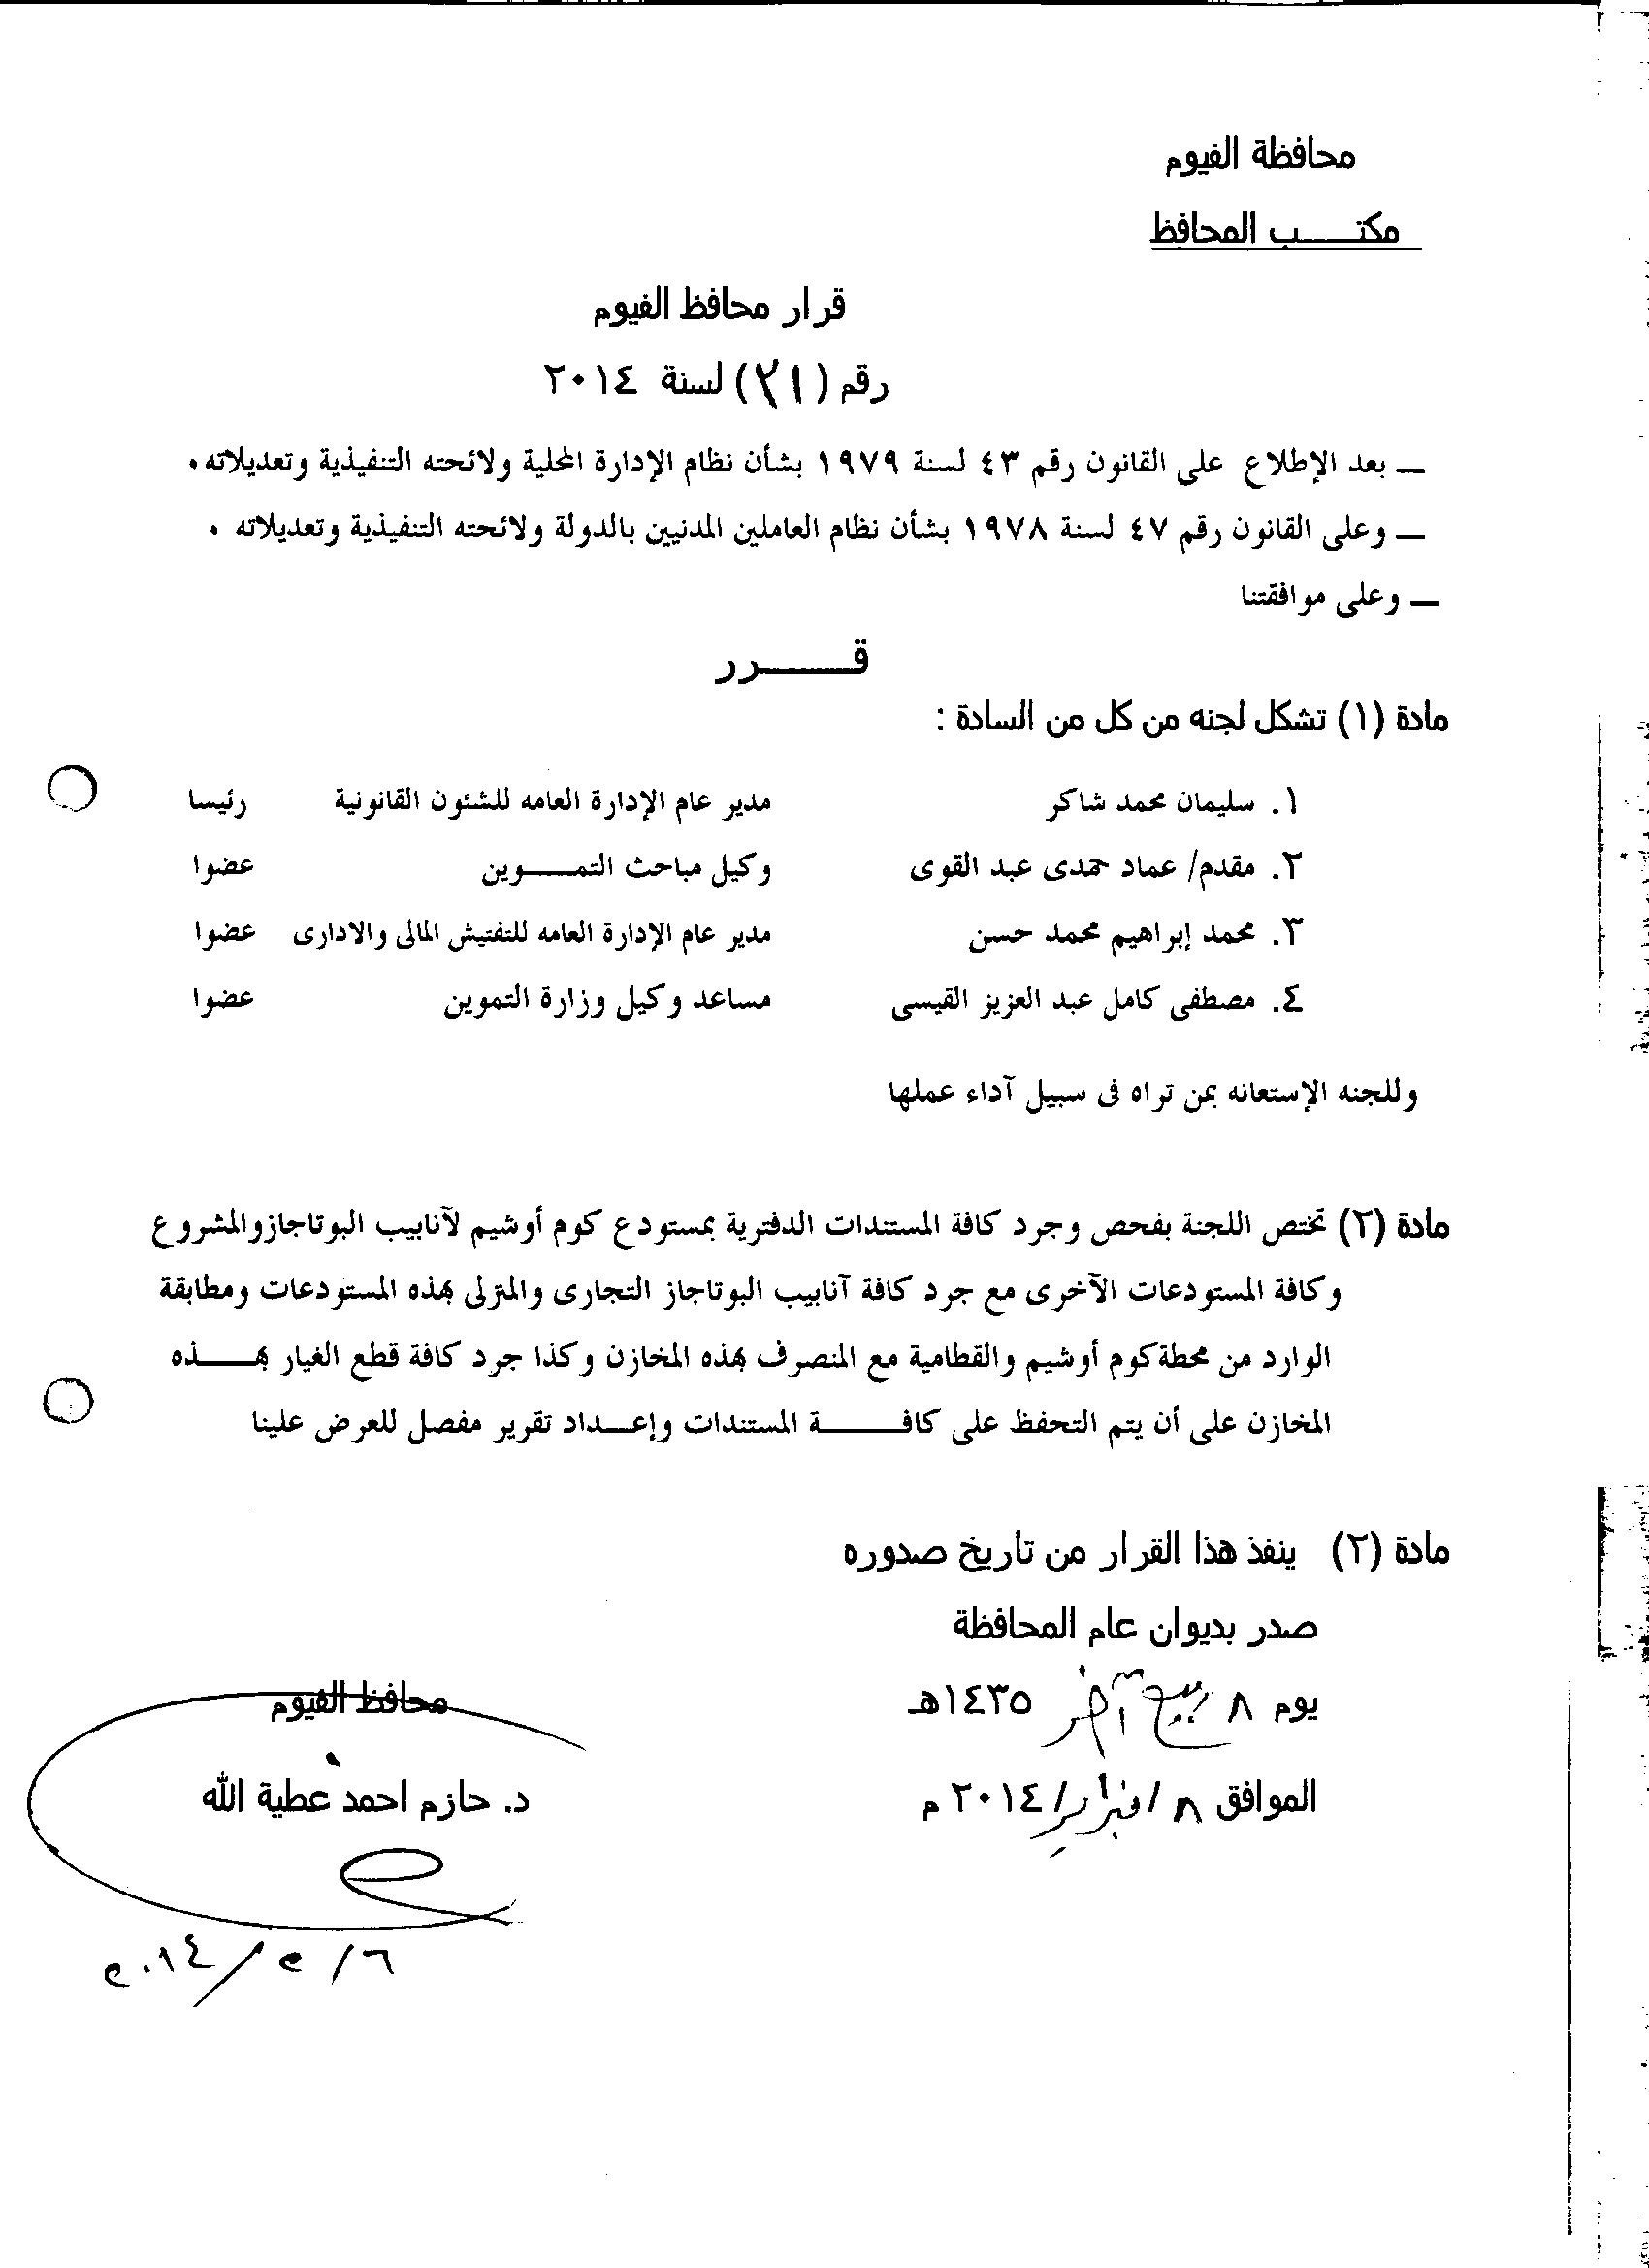 محافظة الفيوم
مكتـــب المحافظ
قرار محافظ الفيوم
رقم (٢١) لسنة ٢٠١٤
ــ بعد الإطلاع على القانون رقم ٤٣ لسنة ١٩٧٩ بشأن نظام الإدارة المحلية ولائحته التنفيذية وتعديلاته ٠
ــ وعلى القانون رقم ٤٧ لسنة ١٩٧٨ بشأن نظام العاملين المدنيين بالدولة ولائحته التنفيذية وتعديلاته ٠
ــ وعلى موافقتنا
قـــــرر
مادة (١) تشكل لجنه من كل من السادة :
١. سليمان محمد شاكر مدير عام الإدارة العامه للشئون القانونية رئيسا
٢. مقدم/ عماد حمدى عبد القوى وكيل مباحث التمــــوين عضوا
٣. محمد إبراهيم محمد حسن مدير عام الإدارة العامه للتفتيش المالى والادارى عضوا
٤. مصطفى كامل عبد العزيز القيسى مساعد وكيل وزارة التموين عضوا
وللجنه الإستعانه بمن تراه فى سبيل آداء عملها
مادة (٢) تختص اللجنة بفحص وجرد كافة المستندات الدفترية بمستودع كوم أوشيم لآنابيب البوتاجاز والمشروع
وكافة المستودعات الآخرى مع جرد كافة آنابيب البوتاجاز التجارى والمنزلى بهذه المستودعات ومطابقة
الوارد من محطة كوم أوشيم والقطامية مع المنصرف بهذه المخازن وكذا جرد كافة قطع الغيار بهـــذه
المخازن على أن يتم التحفظ على كافـــــة المستندات وإعـــداد تقرير مفصل للعرض علينا
مادة (٢) ينفذ هذا القرار من تاريخ صدوره
صدر بديوان عام المحافظة
يوم ٨ ربيع آخر ١٤٣٥هـ
محافظ الفيوم
الموافق ٨ / فبراير / ٢٠١٤ م
د. حازم احمد عطية الله
٦ / ٢ / ٢٠١٤